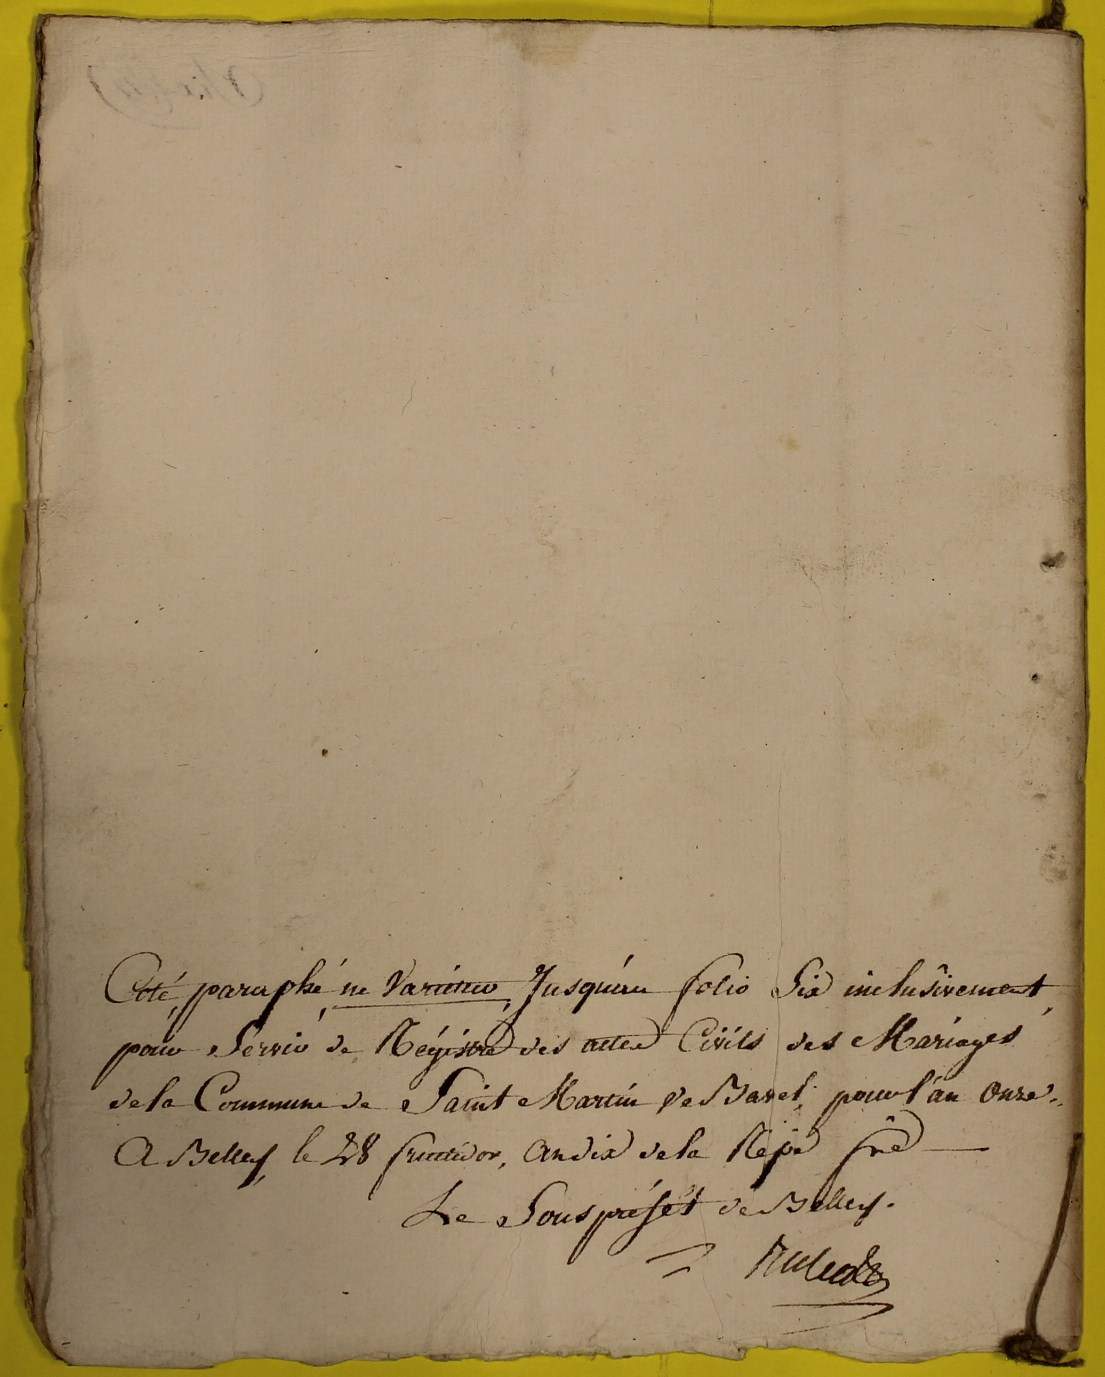 Côté, paraphé, ne Varietur, Jusqu'au folio Six inclusivement,
pour Servir de Régistre des actes Civils des Mariages
de la Commune de Saint Martin de Bavel, pour l'an Onze.
A Belley, le 28 fructidor, an dix de la Répe frse
Le Sous préfet de Belley.